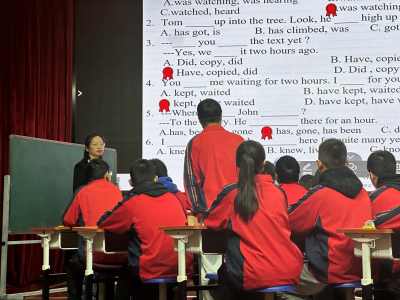 A.was watching, was hearing
C.watched, heard was watching
2. Tom ____ up into the tree. Look, he ____ high up
A. has got, is B. has climbed, was C. got
3. --- ____ you ____ the text yet ?
---Yes, we ____ it two hours ago.
A. Did, copy, did B. Have, copie
Have, copied, did D. Did , copy
4. You ____ me waiting for two hours. I ____ for you
A. kept, waited B. have kept, waited
kept, waited D. have kept, have
5. John ____ ?
---To the ____. He ____ there for an hour.
A.has, gone has, gone, has been C. d
6. I ____ here quite many ye
A. kne B. knew, liv C. know